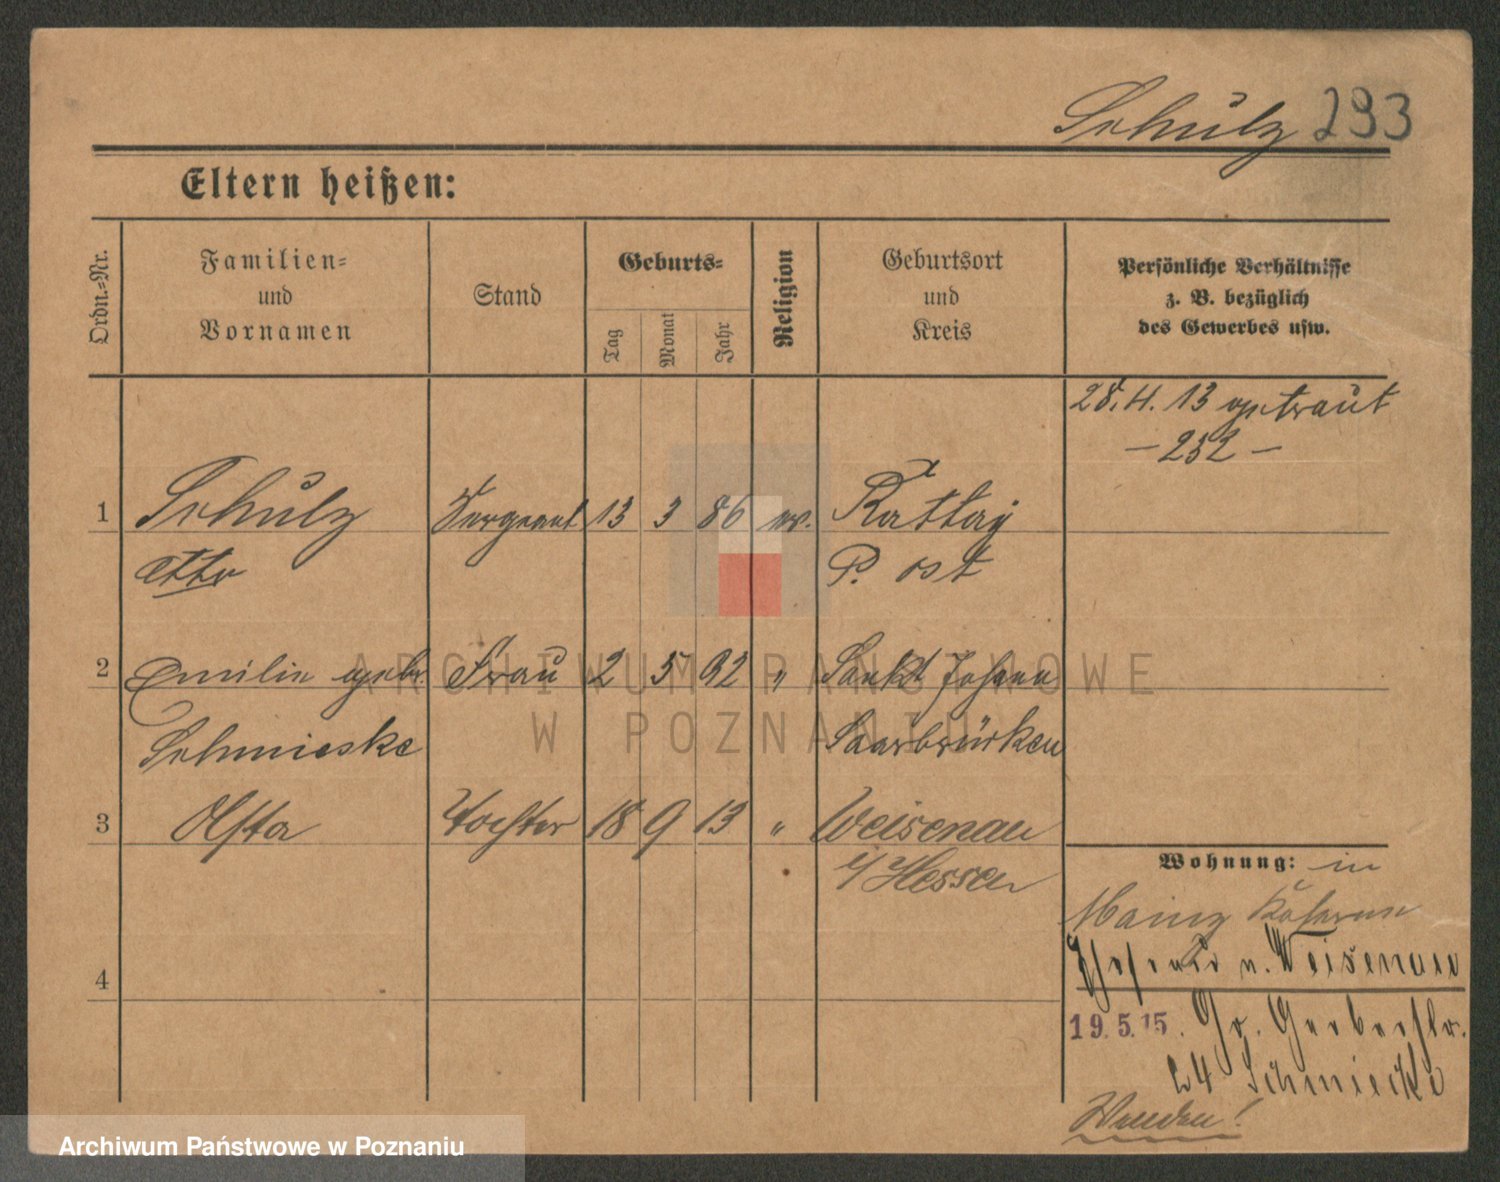 Schulz 293
Eltern heißen:
Ordn.-Nr.
Familien-
und
Vornamen
Stand
Geburts-
Tag
Monat
Jahr
Religion
Geburtsort
und
Kreis
Persönliche Verhältnisse
z. B. bezüglich
des Gewerbes usw.
28.4.13 getraut
- 252 -
1 Schulz Sergeant 13 3 86 ev. Rattay
Otto P. Ost
2 Emilie geb. Frau 2 5 92 " Sankt Johann
Schmieske Saarbrücken
3 Tochter 18 9 13 " Weisenau
i/Hessen
4
Wohnung: in
Mainz Kaserne
n. Weisenau
19.5.15. Gr. Gerberstr.
24 Schmiecke
Wenden!
ARCHIWUM PAŃSTWOWE
W POZNANIU
Archiwum Państwowe w Poznaniu